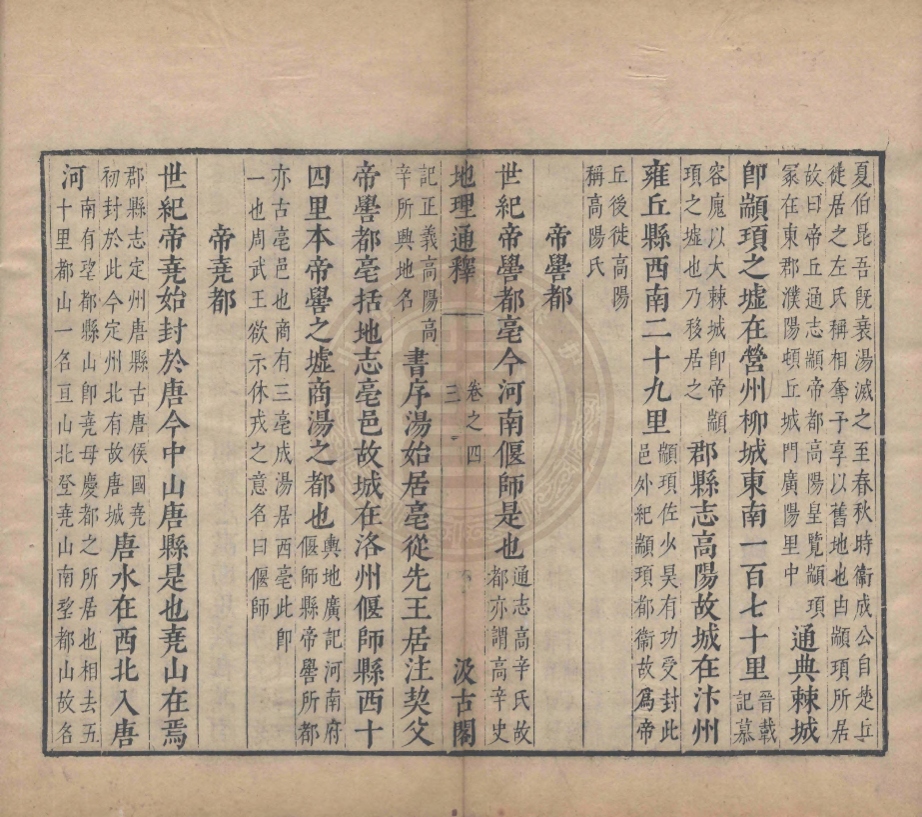 夏伯昆吾旣衰湯滅之至春秋時衞成公自楚丘
徙居之左氏稱相奪予享以舊地也由顓頊所居
故曰帝丘通志顓帝都高陽皇覽顓頊
冢在東郡濮陽頓丘城門廣陽里中
通典棘城
卽顓頊之墟在營州柳城東南一百七十里
晉載
記慕
容廆以大棘城卽帝顓
頊之墟也乃移居之
郡縣志高陽故城在汴州
雍丘縣西南二十九里
顓頊佐少昊有功受封此
邑外紀顓頊都衞故爲帝
丘後徙高陽
稱高陽氏
帝嚳都
世紀帝嚳都亳今河南偃師是也
通志高辛氏故
都亦謂高辛史
地理通釋
卷之四
三
汲古閣
記正義高陽高
辛所興地名
書序湯始居亳從先王居注契父
帝嚳都亳括地志亳邑故城在洛州偃師縣西十
四里本帝嚳之墟商湯之都也
輿地廣記河南府
偃師縣帝嚳所都
亦古亳邑也商有三亳成湯居西亳此卽
一也周武王欲示休戎之意名曰偃師
帝堯都
世紀帝堯始封於唐今中山唐縣是也堯山在焉
郡縣志定州唐縣古唐侯國堯
初封於此今定州北有故唐城
唐水在西北入唐
河
南有望都縣山卽堯母慶都之所居也相去五
十里都山一名豆山北登堯山南望都山故名